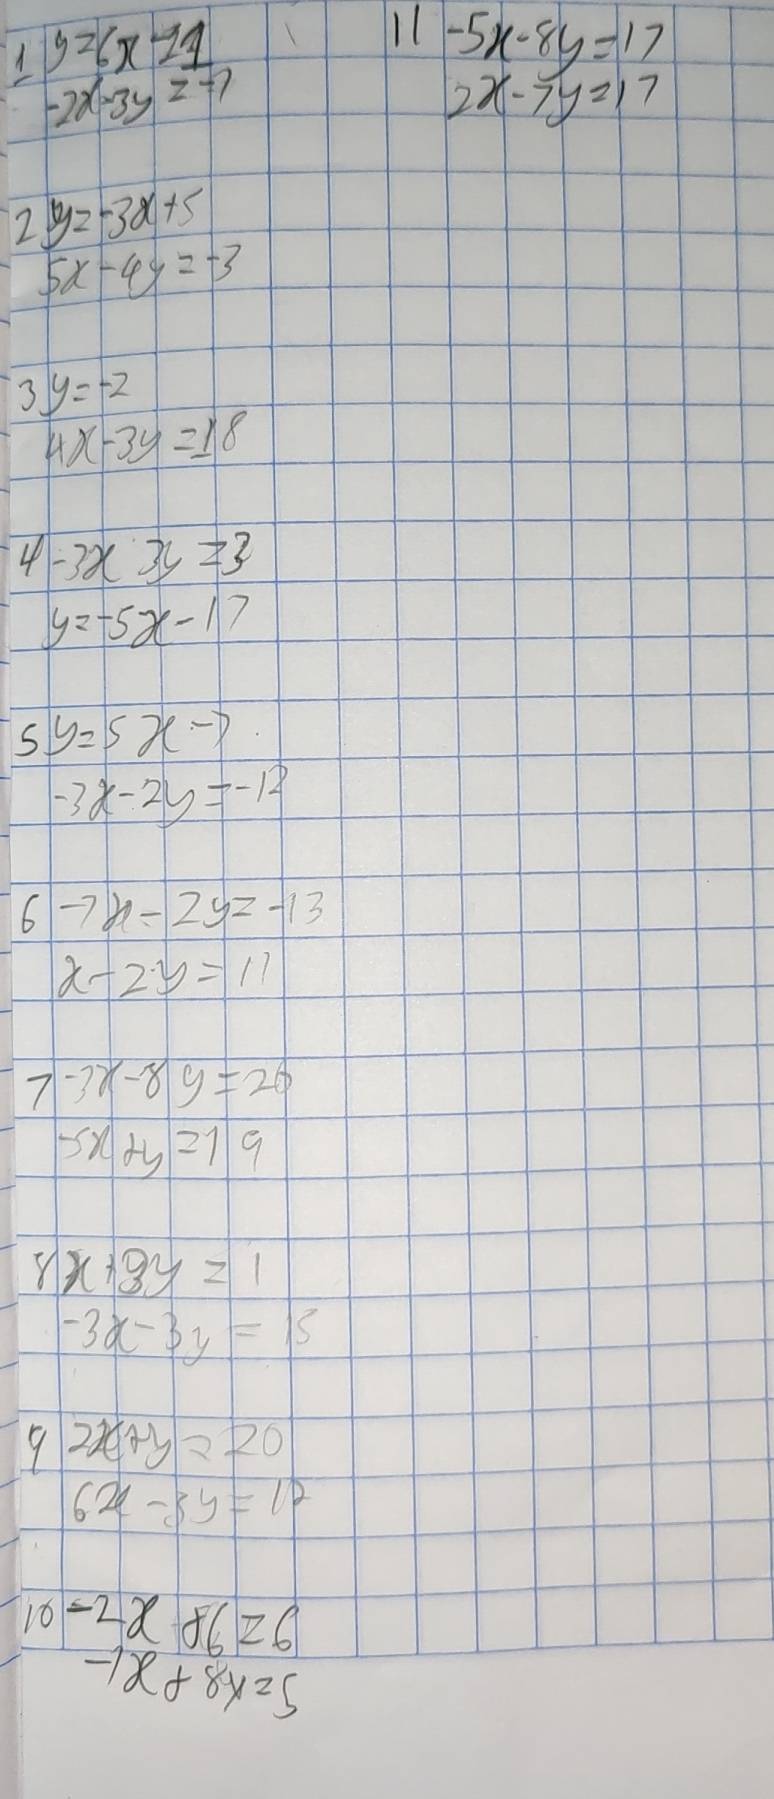 1 y=6x-11
-2x-3y=-7
2 y=-3x+5
5x-4y=-3
3 y=-2
4x-3y=18
4 -3x 3y=3
y=-5x-17
5 y=5x-7
-3x-2y=-12
6 -7x-2y=-13
x-2y=11
7 -3x-8y=20
-5x+y=19
8 x+3y=1
-3x-3y=15
9 2x+y=20
6x-3y=12
10 -2x 86=6
-7x+8x=5
11 -5x-8y=17
2x-7y=17